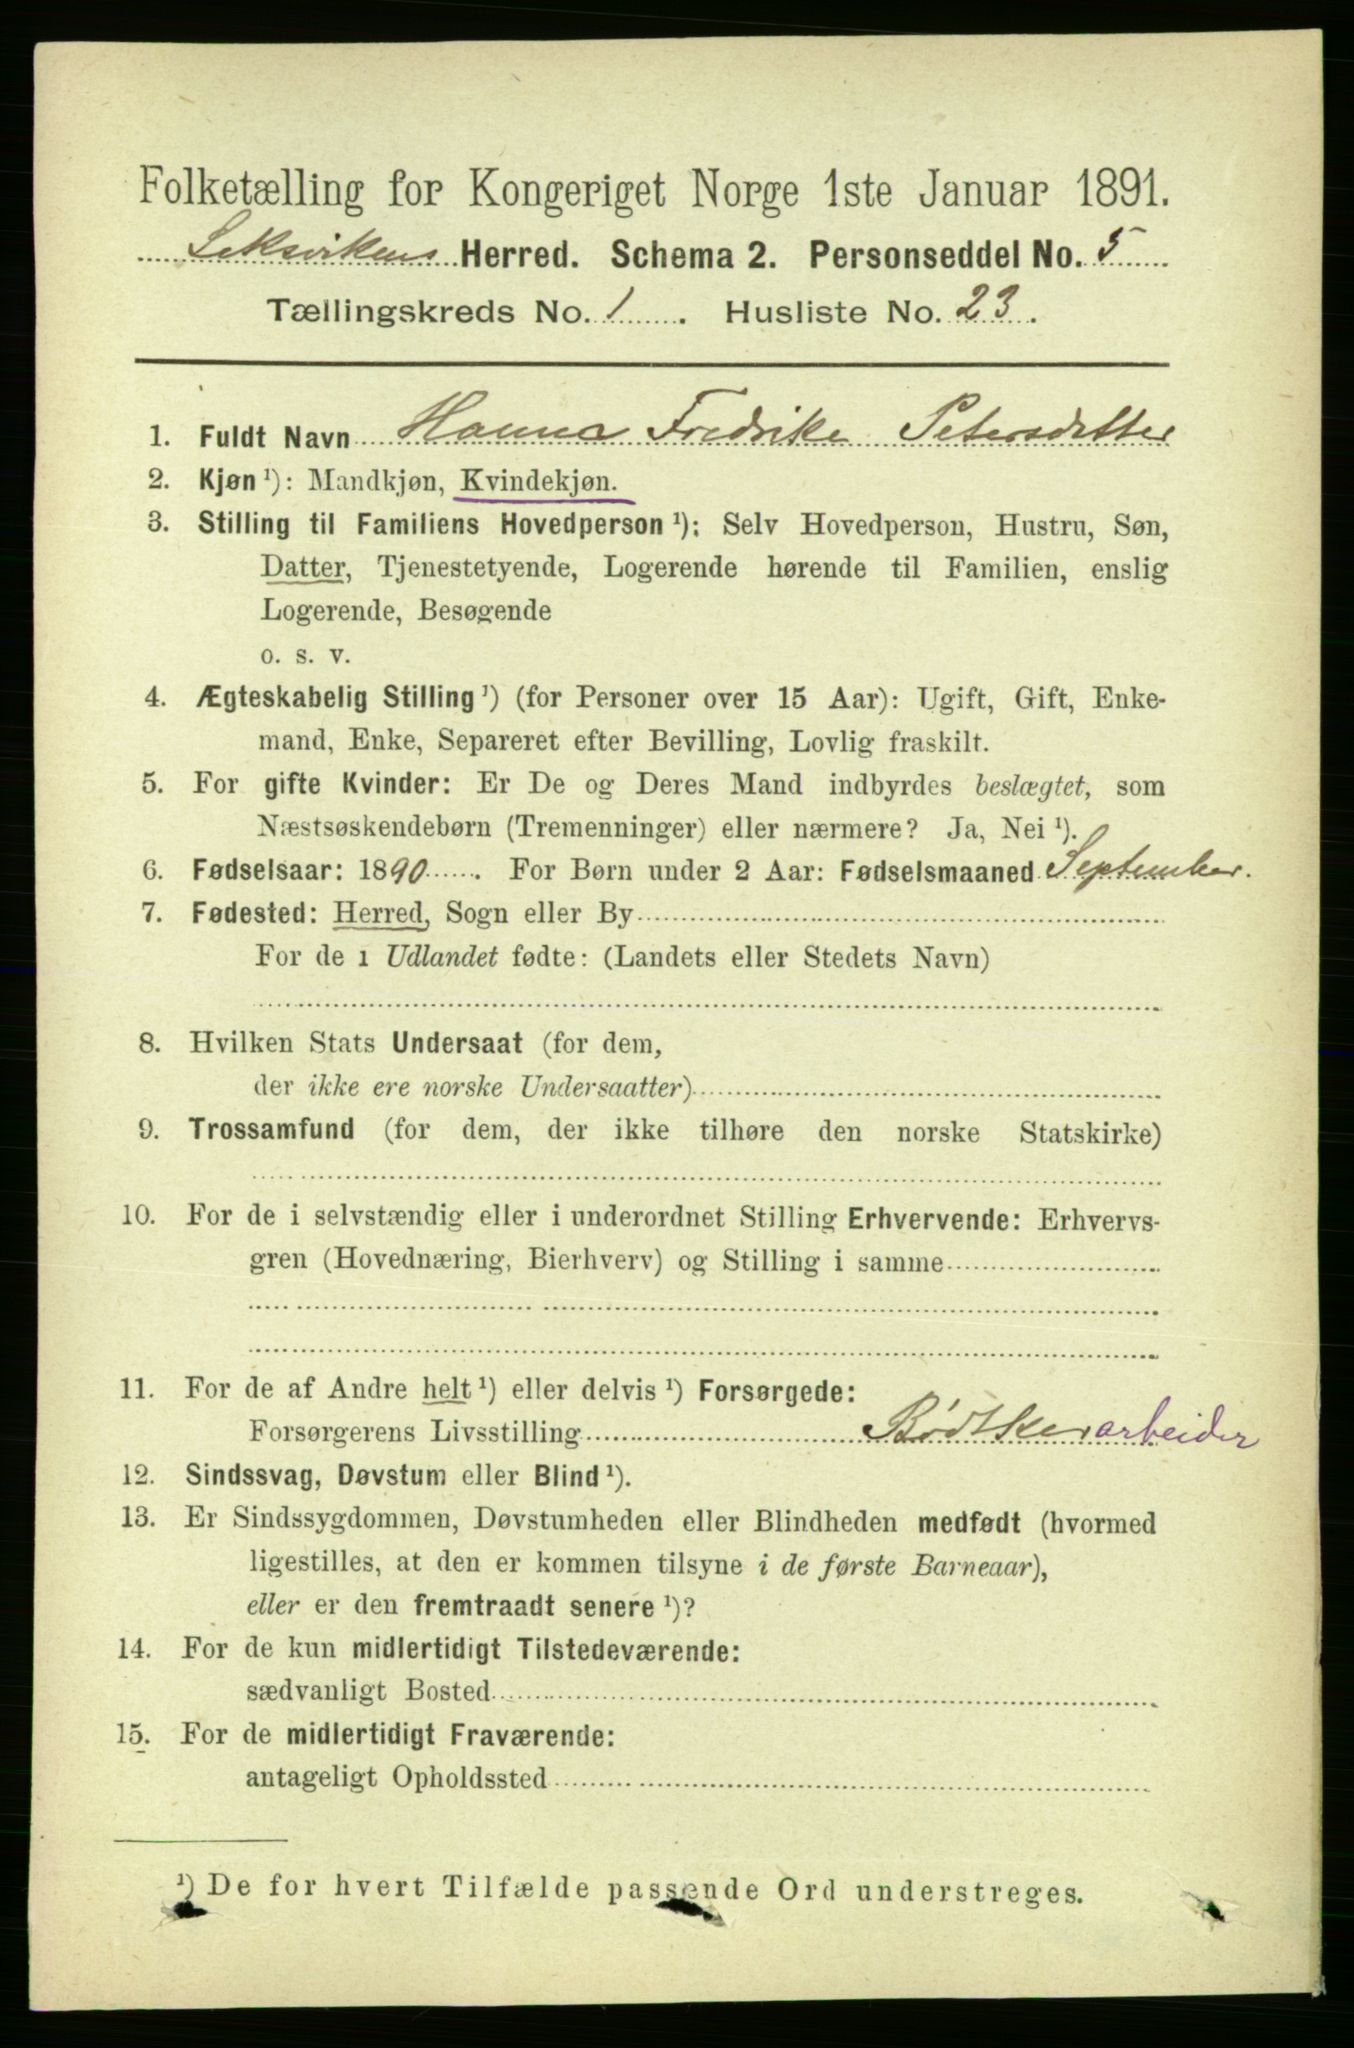 Folketælling for Kongeriget Norge 1ste Januar 1891.
Leksvikens Herred. Schema 2. Personseddel No. 5
Tællingskreds No. 1. Husliste No. 23.
1. Fuldt Navn Hanna Fredrike Petersdatter
2. Kjøn ¹): Mandkjøn, Kvindekjøn.
3. Stilling til Familiens Hovedperson ¹): Selv Hovedperson, Hustru, Søn,
Datter, Tjenestetyende, Logerende hørende til Familien, enslig
Logerende, Besøgende
o. s. v.
4. Ægteskabelig Stilling ¹) (for Personer over 15 Aar): Ugift, Gift, Enke-
mand, Enke, Separeret efter Bevilling, Lovlig fraskilt.
5. For gifte Kvinder: Er De og Deres Mand indbyrdes beslægtet, som
Næstsøskendebørn (Tremenninger) eller nærmere? Ja, Nei ¹).
6. Fødselsaar: 1890. For Børn under 2 Aar: Fødselsmaaned September.
7. Fødested: Herred, Sogn eller By
For de i Udlandet fødte: (Landets eller Stedets Navn)
8. Hvilken Stats Undersaat (for dem,
der ikke ere norske Undersaatter)
9. Trossamfund (for dem, der ikke tilhøre den norske Statskirke)
10. For de i selvstændig eller i underordnet Stilling Erhvervende: Erhvervs-
gren (Hovednæring, Bierhverv) og Stilling i samme
11. For de af Andre helt ¹) eller delvis ¹) Forsørgede:
Forsørgerens Livsstilling Bødkerarbeider
12. Sindssvag, Døvstum eller Blind ¹).
13. Er Sindssygdommen, Døvstumheden eller Blindheden medfødt (hvormed
ligestilles, at den er kommen tilsyne i de første Barneaar),
eller er den fremtraadt senere ¹)?
14. For de kun midlertidigt Tilstedeværende:
sædvanligt Bosted
15. For de midlertidigt Fraværende:
antageligt Opholdssted
¹) De for hvert Tilfælde passende Ord understreges.